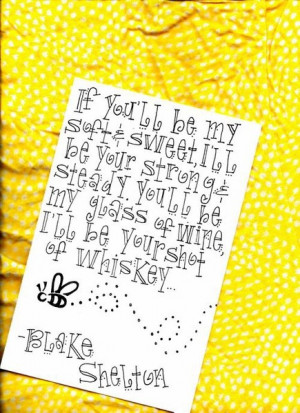 If you'll be my
soft & sweet, I'll
be your strong &
steady. You'll be
my glass of wine,
I'll be your shot
of whiskey...
-Blake
Shelton